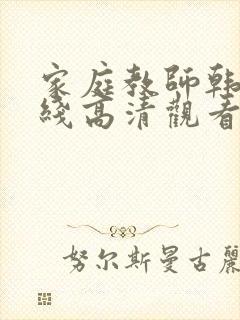 家庭教師韩
綫高清觀看
努尔斯曼古麗